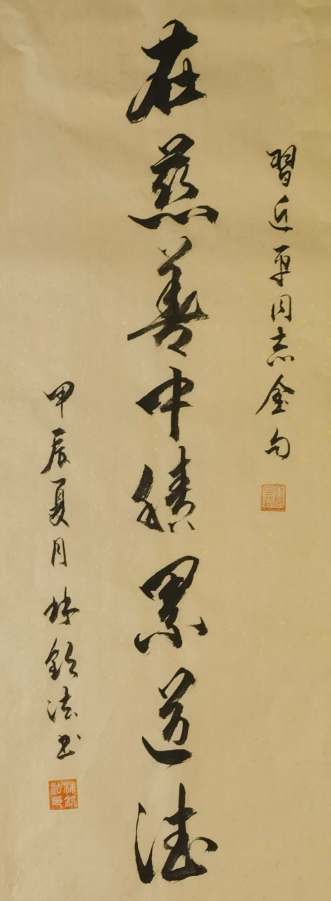 習近平同志金句
在慈善中積累道德
甲辰夏月林欽法書